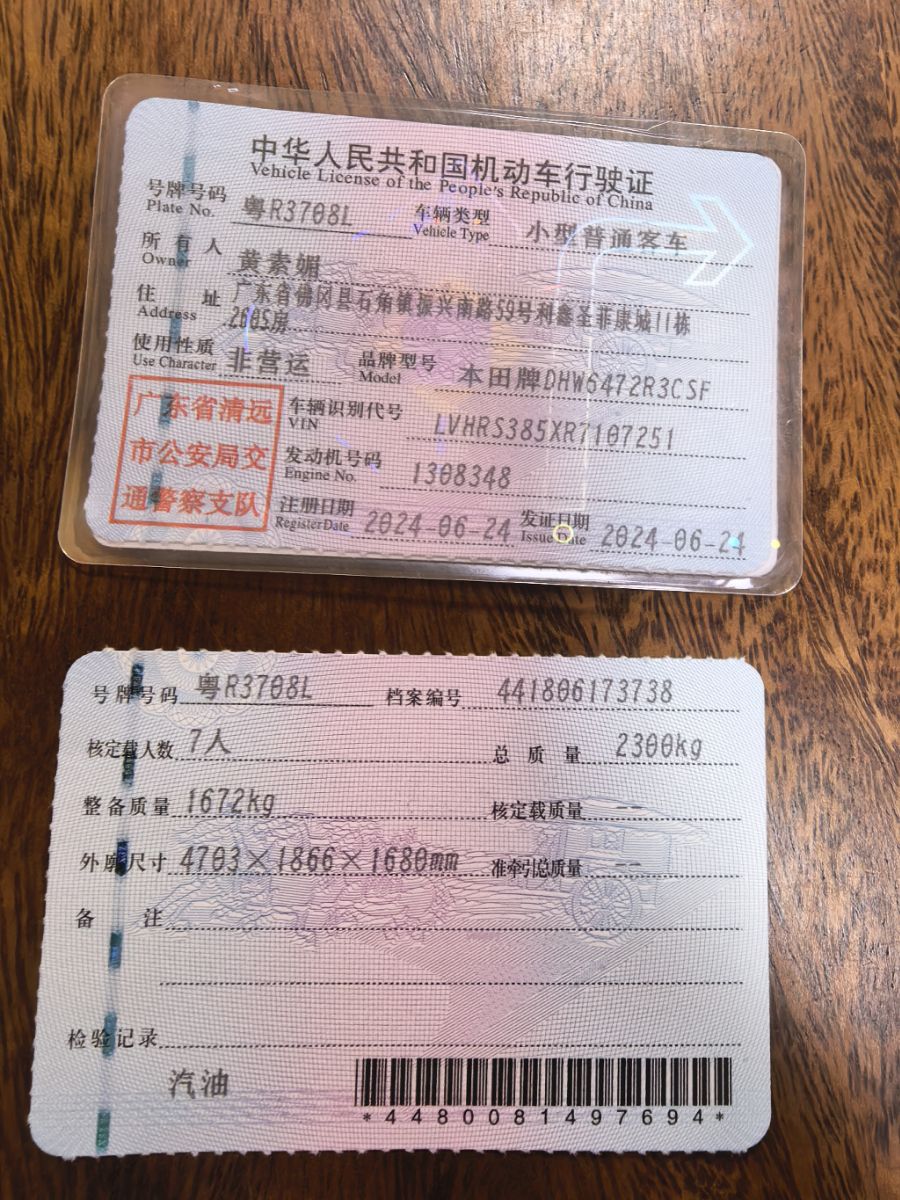 中华人民共和国机动车行驶证
Vehicle License of the People's Republic of China
号牌号码 粤R3708L 车辆类型 小型普通客车
Plate No. Vehicle Type
所有人 黄素媚
Owner
住址 广东省佛冈县石角镇振兴南路59号利鑫圣菲康城11栋
Address 2605房
使用性质 非营运 品牌型号 本田牌DHW6472R3CSF
Use Character Model
广东省清远
市公安局交
通警察支队
车辆识别代号 LVHRS385XR7107251
VIN
发动机号码 1308348
Engine No.
注册日期 2024-06-24 发证日期 2024-06-24
Register Date Issue Date
号牌号码 粤R3708L 档案编号 441806173738
核定载人数 7人 总质量 2300kg
整备质量 1672kg 核定载质量 --
外廓尺寸 4703×1866×1680mm 准牵引总质量 --
备注
检验记录
汽油
*4480081497694*